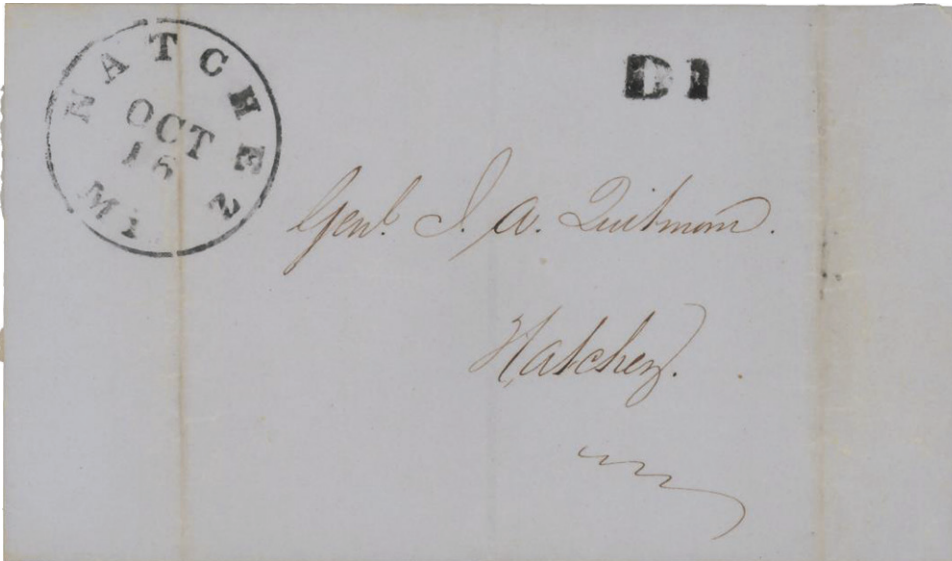 NATCHEZ
OCT
16
MI
D1
Genl. J. A. Quitman.
Natchez.